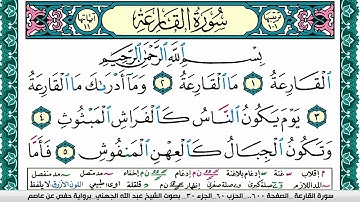 سُورَةُ القَارِعَةِ
بِسْمِ اللَّهِ الرَّحْمَٰنِ الرَّحِيمِ
الْقَارِعَةُ ١ مَا الْقَارِعَةُ ٢ وَمَا أَدْرَاكَ مَا الْقَارِعَةُ
٣ يَوْمَ يَكُونُ النَّاسُ كَالْفَرَاشِ الْمَبْثُوثِ ٤
وَتَكُونُ الْجِبَالُ كَالْعِهْنِ الْمَنْفُوشِ ٥ فَأَمَّا
سورة القارعة . الصفحة ٦٠٠ . الحزب ٦٠ . الجزء ٣٠ . بصوت الشيخ عبد الله الجهني . برواية حفص عن عاصم